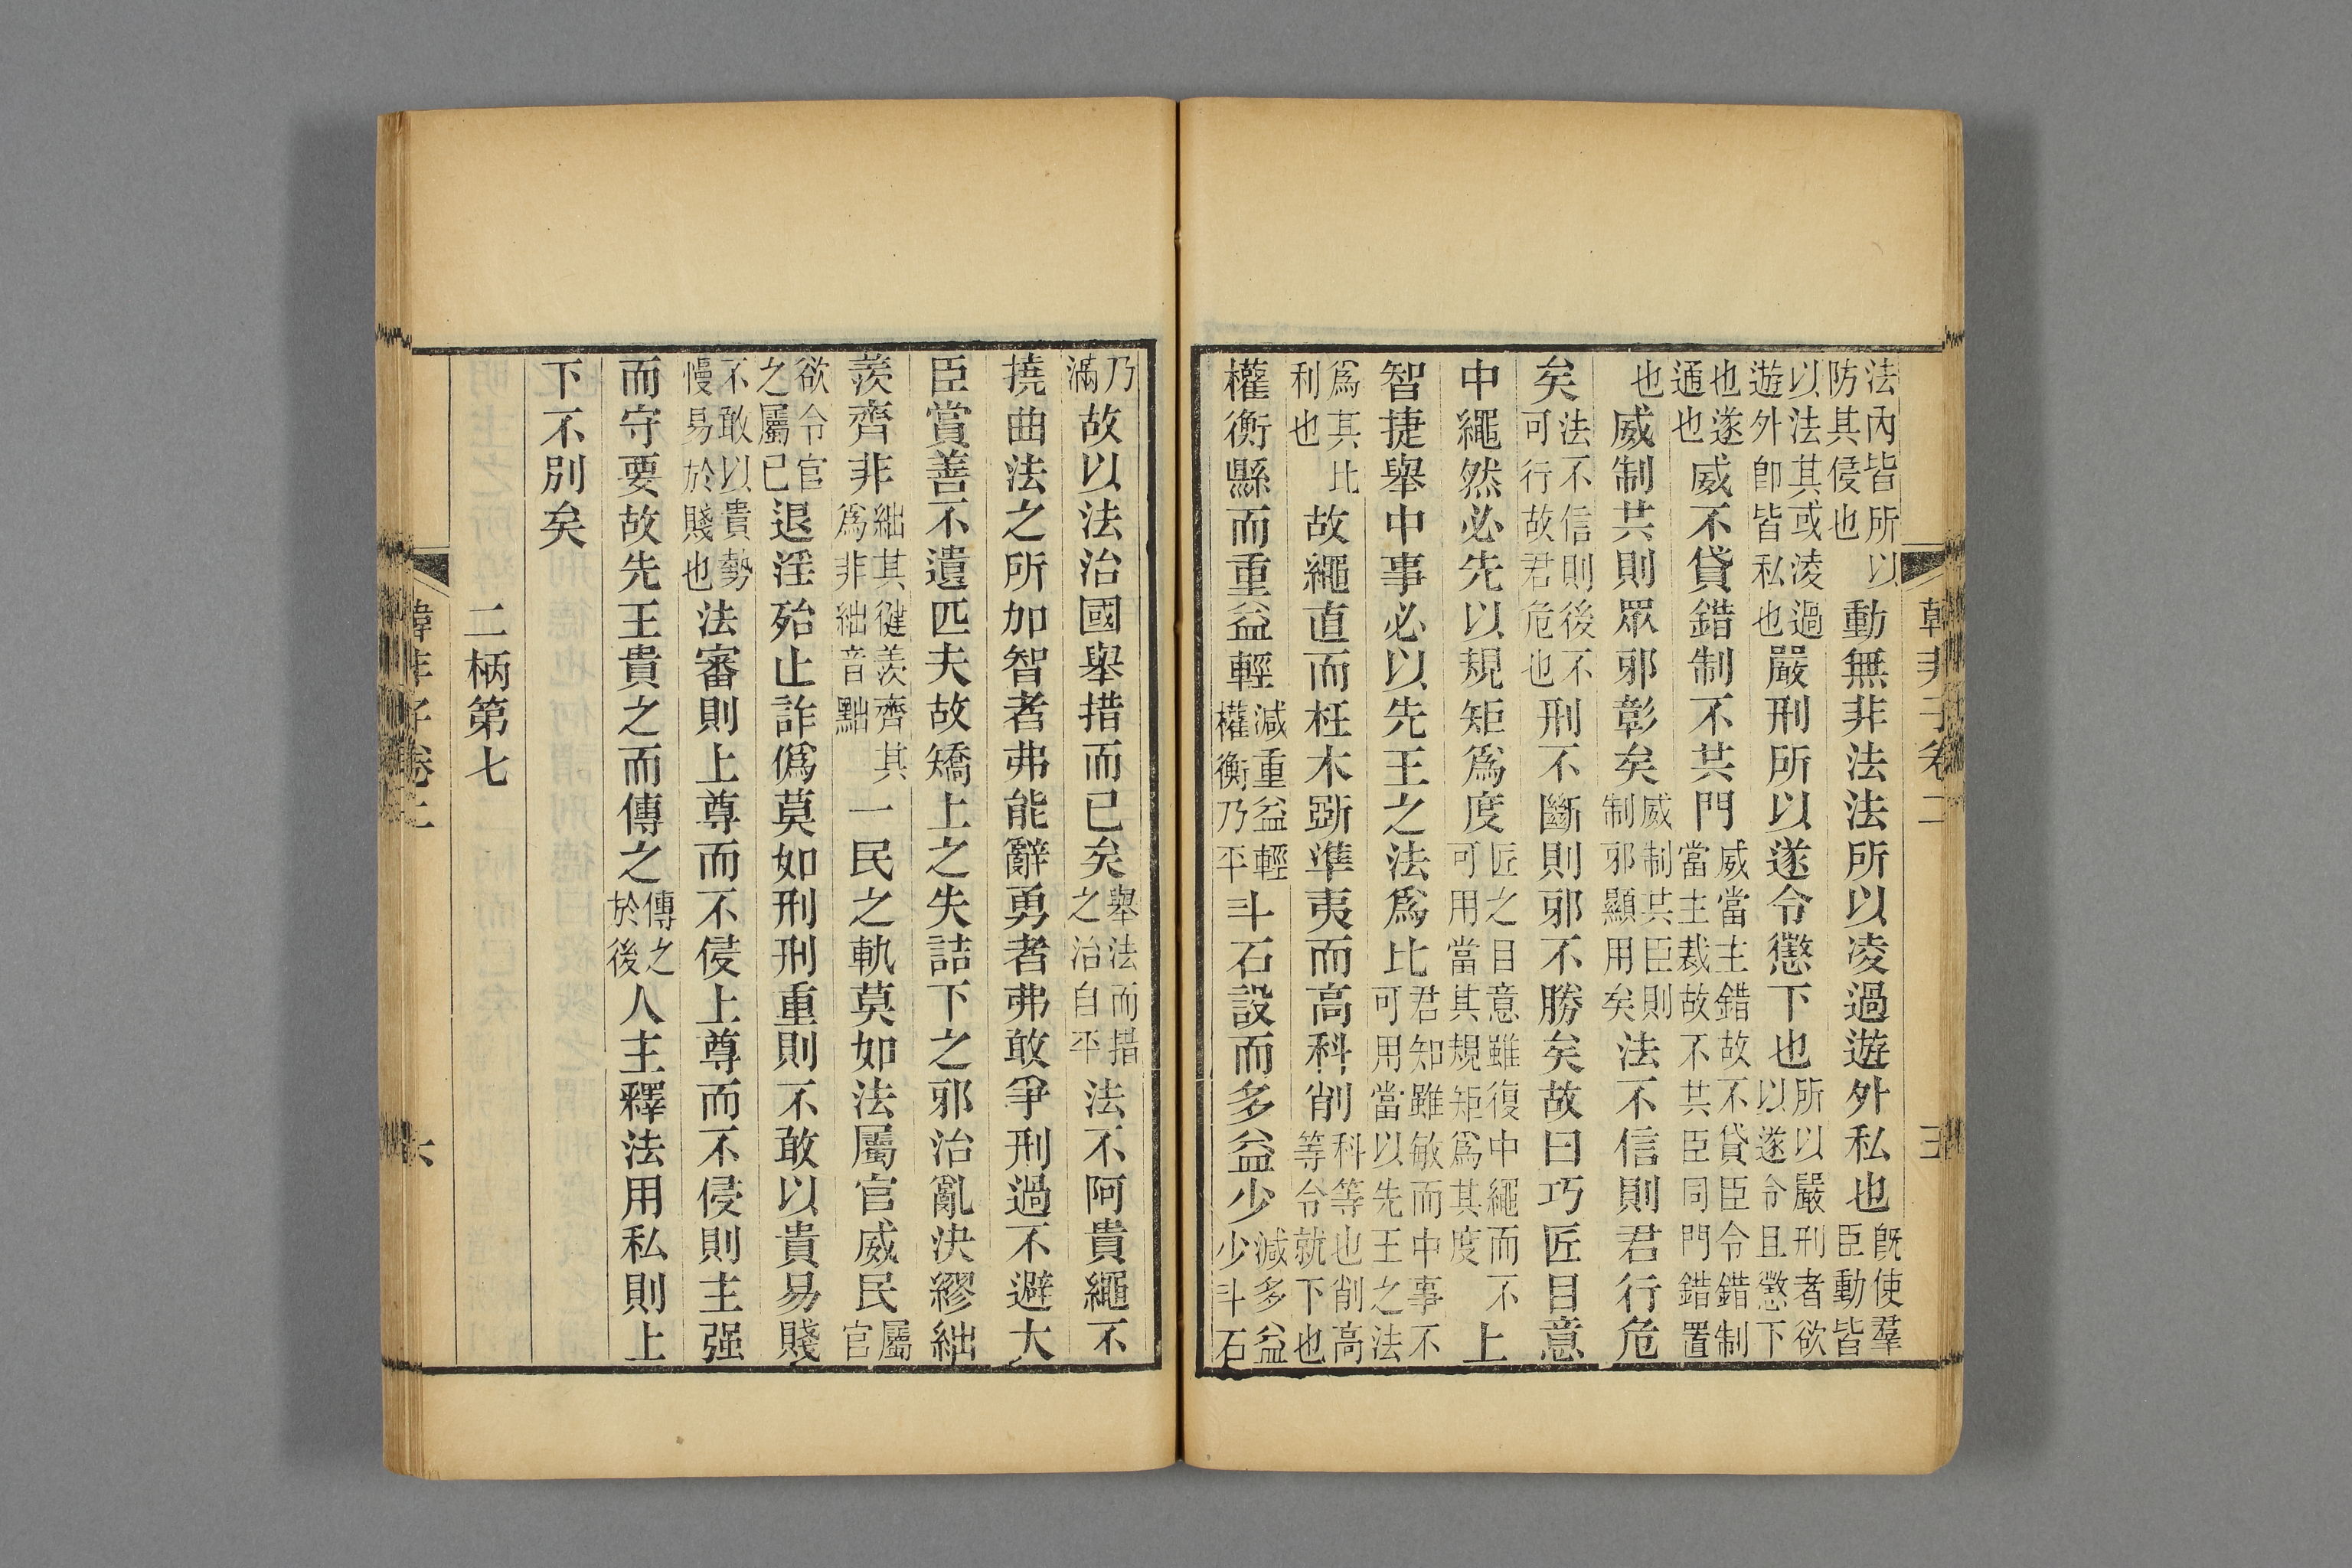 韓非子卷二 三
法內皆所以防其侵也動無非法法所以凌過遊外私也旣使羣臣動皆
以法其或凌過遊外卽皆私也嚴刑所以遂令懲下也所以嚴刑者欲以遂令且懲下
也遂通也威不貸錯制不共門威當主錯故不貸臣令錯制當主裁故不共臣同門錯置
也威制共則眾邪彰矣威制共臣則制邪顯用矣法不信則君行危
矣法不信則後不可行故君危也刑不斷則邪不勝矣故曰巧匠目意
中繩然必先以規矩爲度匠之目意雖復中繩而不可用當其規矩爲其度上
智捷舉中事必以先王之法爲比君知雖敏而中事不可用當以先王之法
爲其比利也故繩直而枉木斲準夷而高科削科等也削高等令就下也
權衡縣而重益輕減重益輕權衡乃平斗石設而多益少減多益少斗石
乃滿故以法治國舉措而已矣舉法而措之治自平法不阿貴繩不
撓曲法之所加智者弗能辭勇者弗敢爭刑過不避大
臣賞善不遺匹夫故矯上之失詰下之邪治亂決繆絀
羨齊非絀其健羨齊其爲非絀音黜一民之軌莫如法屬官威民屬官
欲令官之屬已退淫殆止詐僞莫如刑刑重則不敢以貴易賤
不敢以貴勢慢易於賤也法審則上尊而不侵上尊而不侵則主强
而守要故先王貴之而傳之傳之於後人主釋法用私則上
下不別矣
二柄第七
韓非子卷二 六